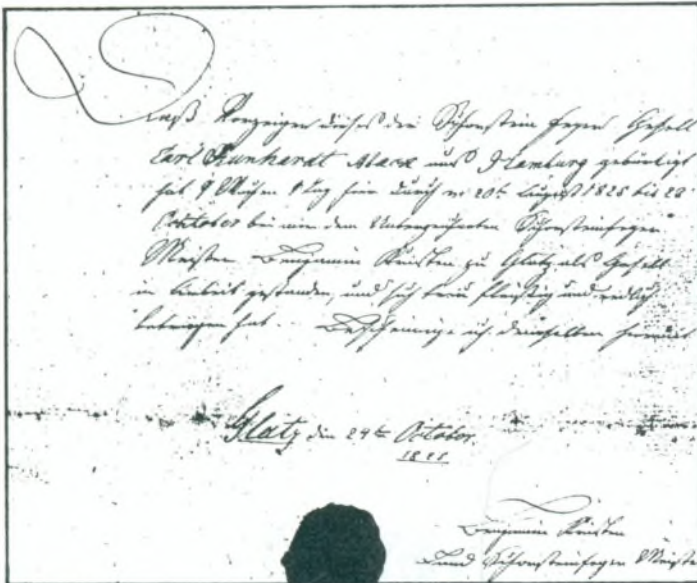 Daß Vorzeiger dieses der Schornstein feger Gesell
Carl Runhardt Marx aus Hamburg gebürtigt
hat 9 Wochen 1 Tag hier durch v: 20t August 1825 bis 23
October bei mir dem Unterzeichneten Schornsteinfeger
Meister Benjamin Kristen zu Glatz als Gesell
in Arbeit gestanden, und sich treu fleißig und redlich
betragen hat. Bescheinige ich demselben hiermit
Glatz den 24te October
1825
Benjamin Kristen
Schornsteinfeger Meister